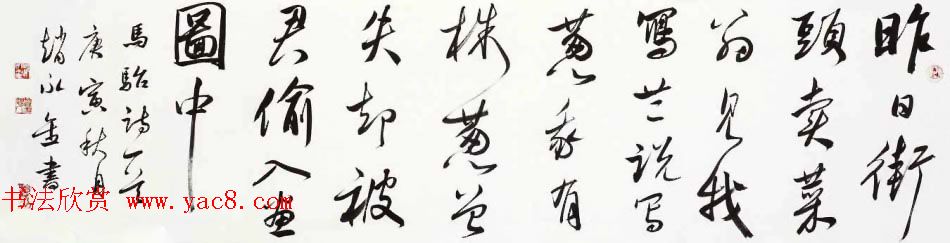 昨日街
頭賣菜
翁見我
寫兰說写
蔥家有
株蔥曾
失却被
君偷入画
圖中
馬駘詩一首
庚寅秋月
趙永金書
书法欣赏 www.yac8.com